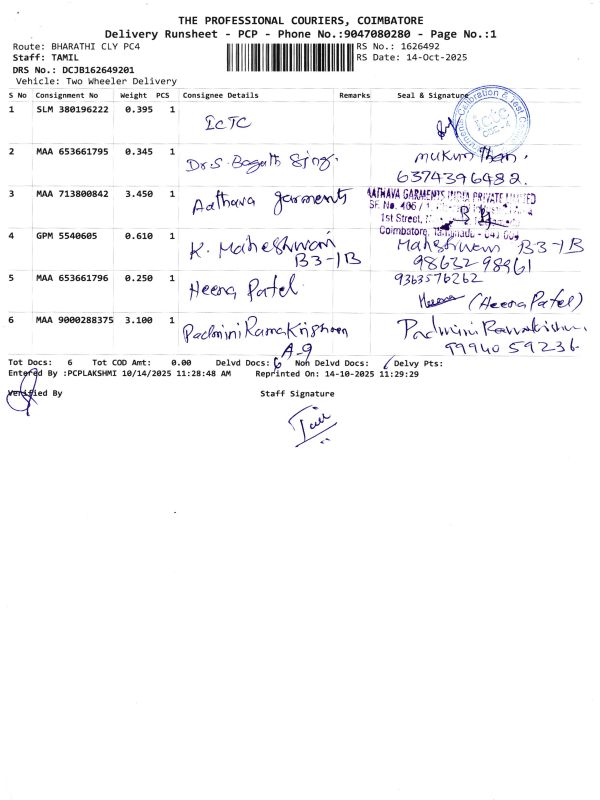 THE PROFESSIONAL COURIERS, COIMBATORE
Delivery Runsheet - PCP - Phone No.:9047080280 - Page No.:1
Route: BHARATHI CLY PC4 RS No.: 1626492
Staff: TAMIL RS Date: 14-Oct-2025
DRS No.: DCJB162649201
Vehicle: Two Wheeler Delivery
S No Consignment No Weight PCS Consignee Details Remarks Seal & Signature
1 SLM 380196222 0.395 1 ICTC
2 MAA 653661795 0.345 1 Dr.S. Bagath Sing. mukunthan.
6374396482.
3 MAA 713800842 3.450 1 Aathava garments AATHAVA GARMENTS INDIA PRIVATE LIMITED
SF. No. 406 / 1
1st Street,
Coimbatore, Tamilnadu - 641 004
4 GPM 5540605 0.610 1 K. Maheshwari Maheshwari B3-1B
B3-1B 98632 98861
5 MAA 653661796 0.250 1 Heena Patel 9363576262
(Heena Patel)
6 MAA 9000288375 3.100 1 Padmini Ramakrishnan Padmini Ramakrishnan
A-9 99940 59236
Tot Docs: 6 Tot COD Amt: 0.00 Delvd Docs: 6 Non Delvd Docs: Delvy Pts:
Entered By :PCPLAKSHMI 10/14/2025 11:28:48 AM Reprinted On: 14-10-2025 11:29:29
Verified By Staff Signature